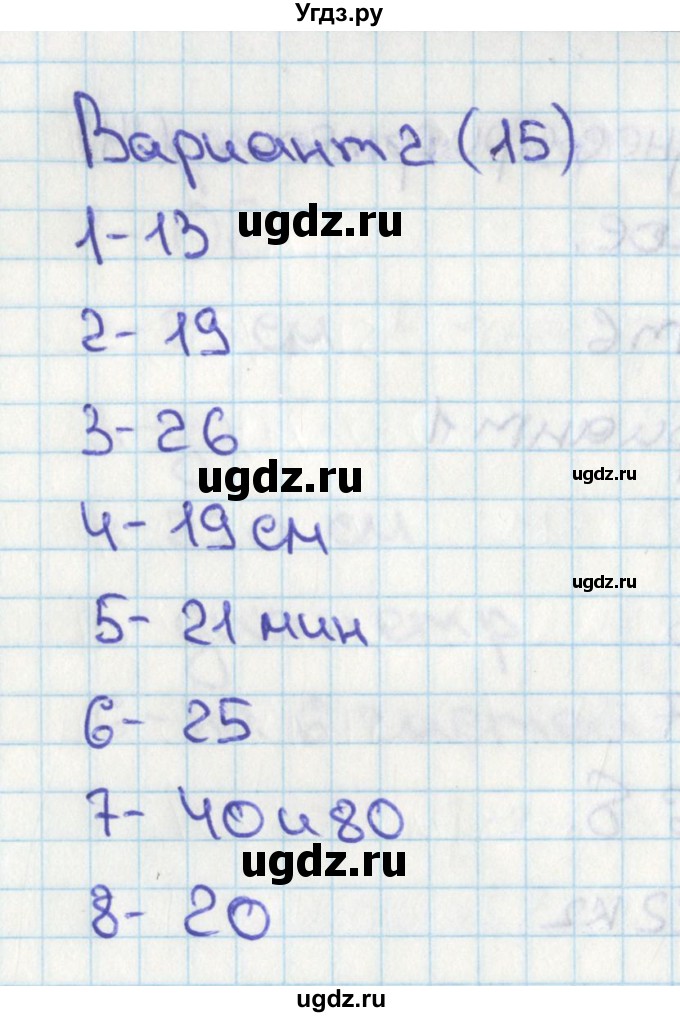 Угдз.ру
Вариант 2 (15)
1- 13
ugdz.ru
2- 19
3- 26
ugdz.ru
ugdz.ru
4- 19 см
ugdz.ru
5- 21 мин
6- 25
7- 40 и 80
ugdz.ru
8- 20
ugdz.ru